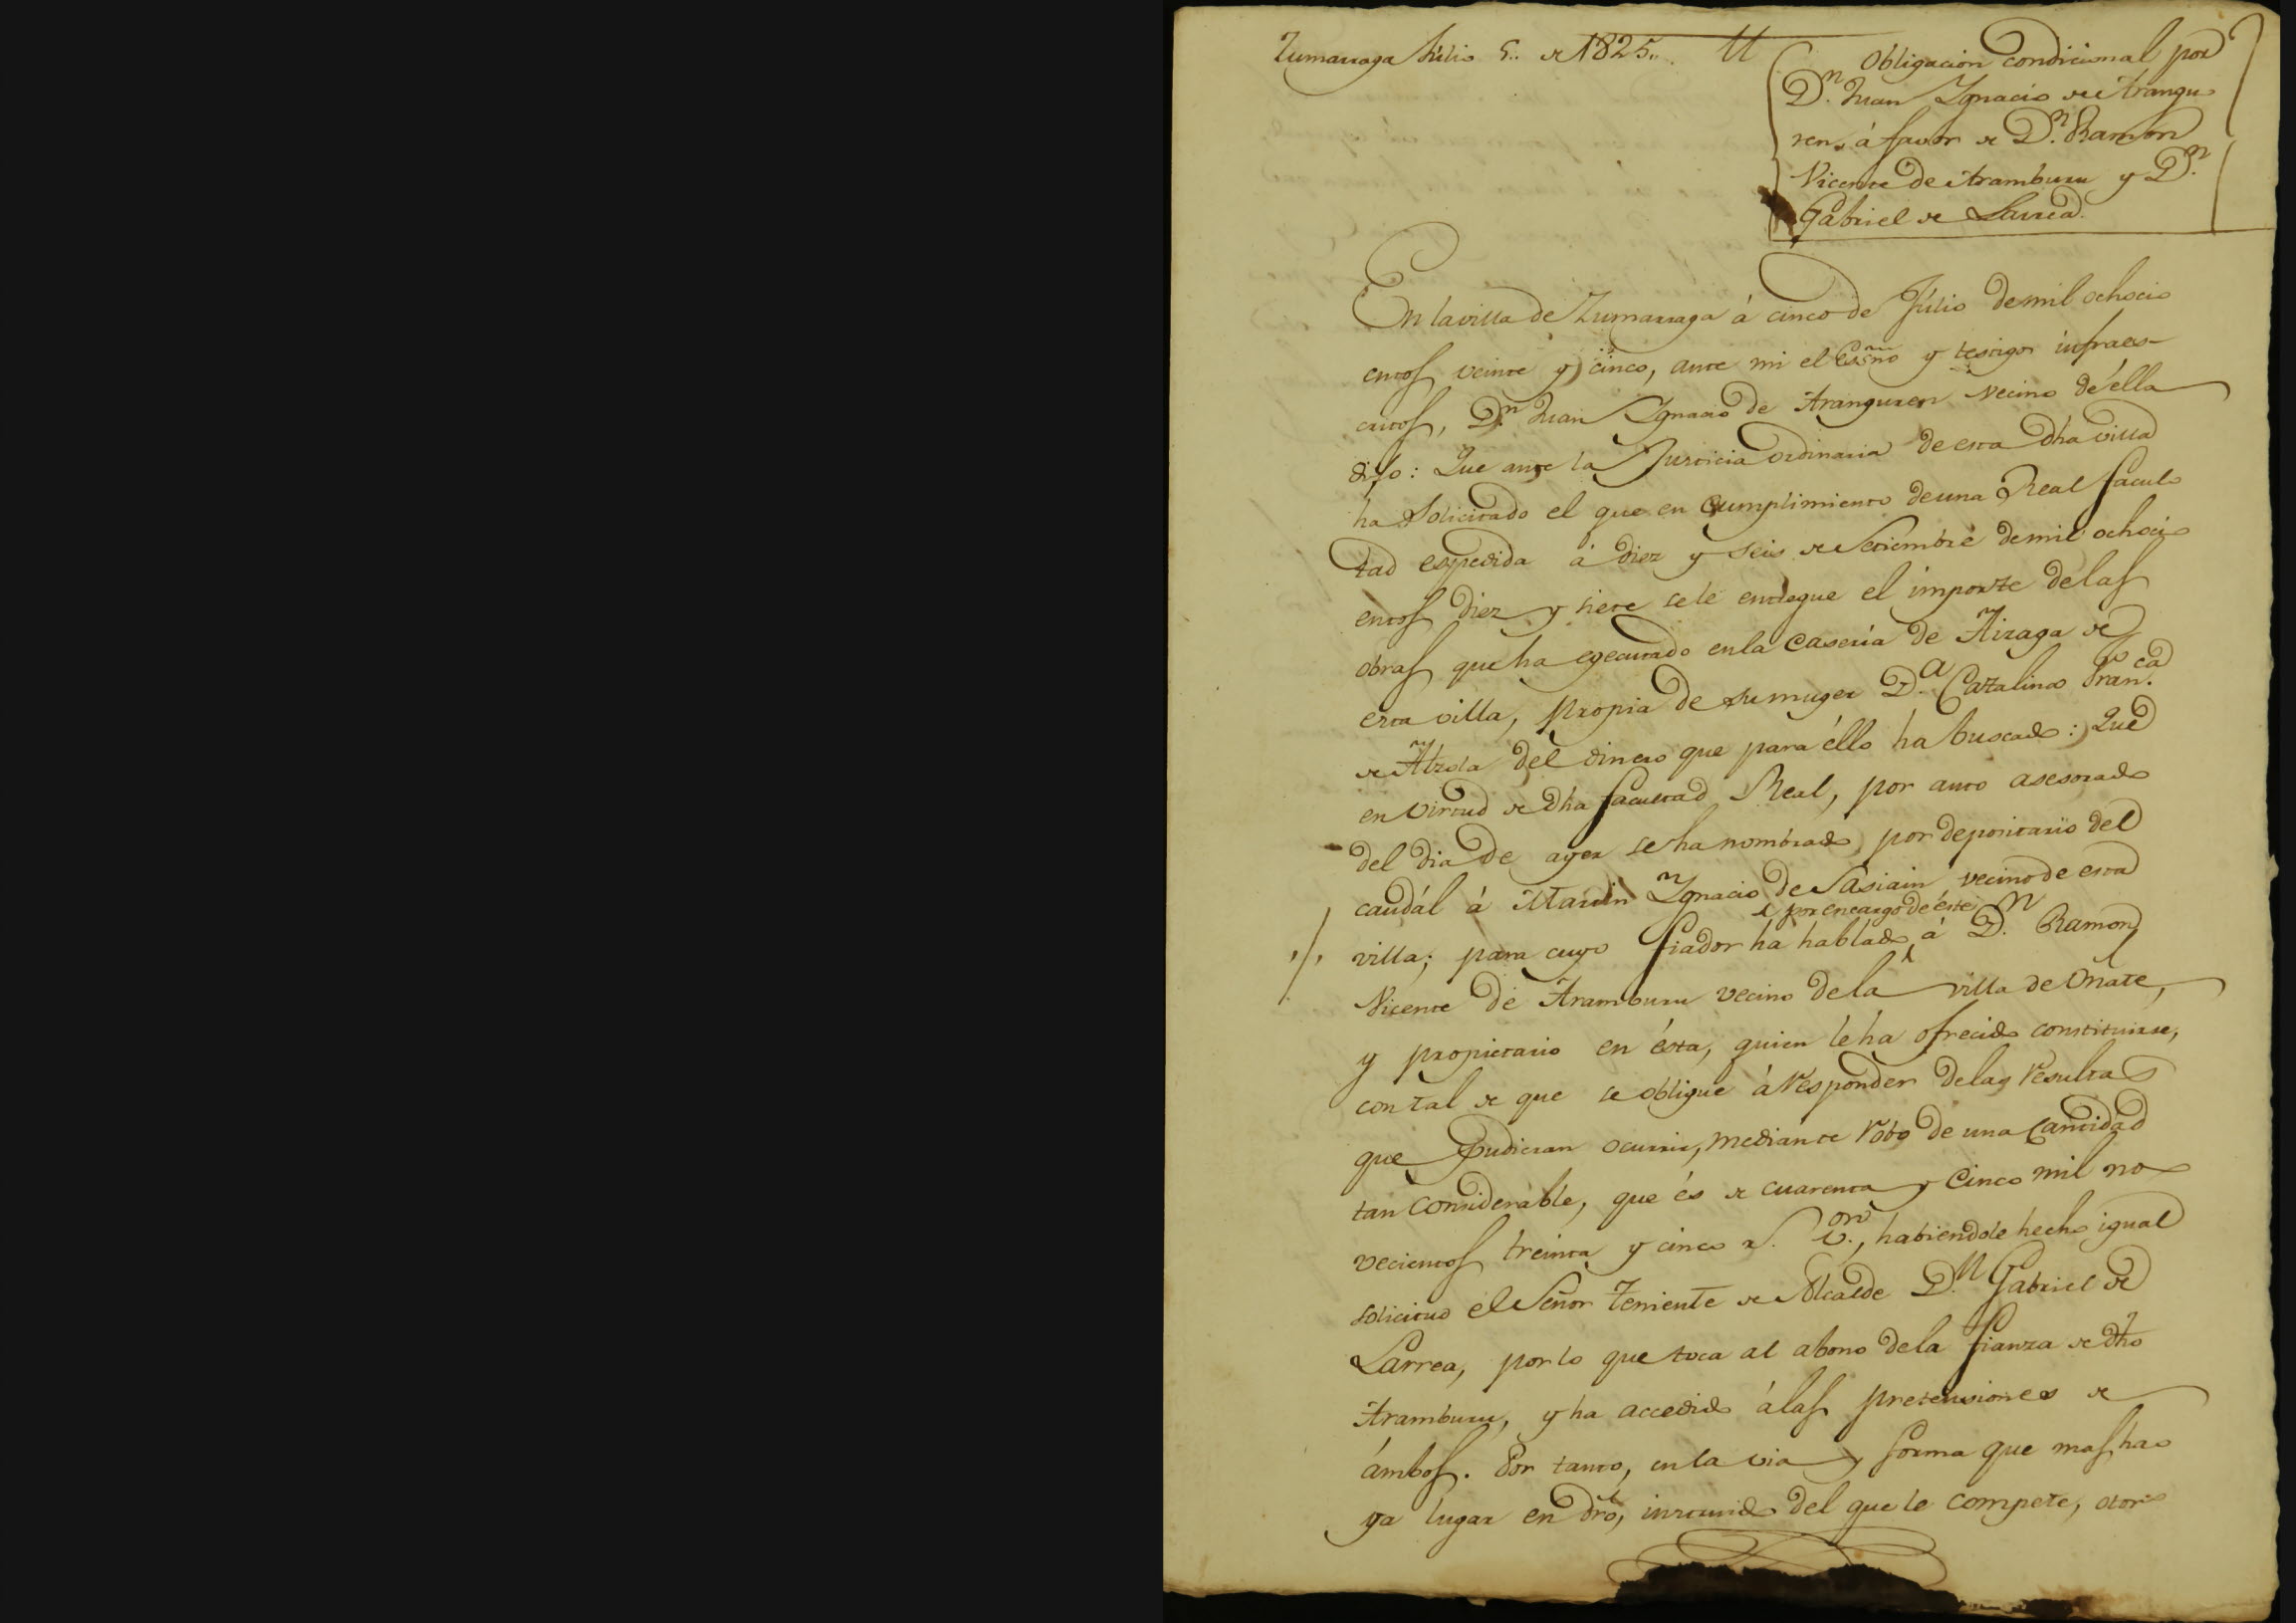 Zumarraga Julio 5.. de 1825..
Obligacion condicional por
D.n Juan Ygnacio de Arangu
ren, á favor de D.n Ramon
Vicente de Aramburu y D.n
Gabriel de Larrea.
En la villa de Zumarraga á cinco de Júlio de mil ochoci
entos veinte y cinco, ante mi el Esc̃no y testigos infraes-
critos, D.n Juan Ygnacio de Aranguren vecino de ella
dijo: Que ante la Justicia ordinaria de esta dha villa
ha solicitado el que en cumplimiento de una Real facul
tad espedida á diez y seis de Setiembre de mil ochoci
entos diez y siete se le entregue el importe de las
obras que ha egecutado en la caseria de Aizaga de
esta villa, propia de su muger D.a Catalina Fran.ca
de Alzola del dinero que para éllo ha buscado: Que
en virtud de dha facultad Real, por auto asesorado
del dia de ayer se ha nombrado por depositario del
caudál á Martin Ygnacio de Sasiain vecino de esta
por encargo de éste
villa; para cuyo fiador ha hablado á D.n Ramon
Vicente de Aramburu vecino de la villa de Oñate,
y propietario en ésta, quien le ha ofrecido constituirse,
con tal de que se obligue á responder de las resultas
que pudieran ocurrir, mediante robo de una cantidad
tan considerable, que és de cuarenta y cinco mil no
vecientos treinta y cinco r.s v.on, habiendole hecho igual
solicitud el Señor Teniente de Alcalde D.n Gabriel de
Larrea, por lo que toca al abono de la fianza de dho
Aramburu, y ha accedido á las pretensiones de
ámbos. Por tanto, en la via y forma que mas ha
ya lugar en dro, instruido del que le compete, otor